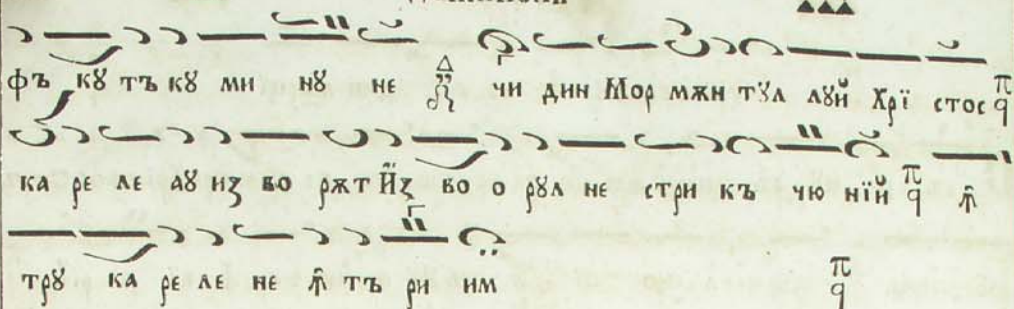 фъ кꙋ тъ кꙋ ми нꙋ не чи дин Мор мѫн тꙋл лꙋй Хрї стос
ка ре ле аꙋ из во рѫт Из во о рꙋл не стри къ чю нїй
трꙋ ка ре ле не тъ ри им